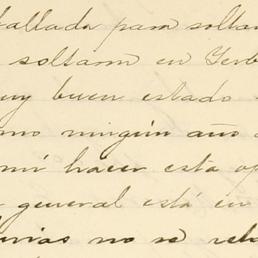 tallada para soltar
soltaron en Yerb
uy buen estado
mo ningún año
mi hacer esta op
general está en
lluvias no se